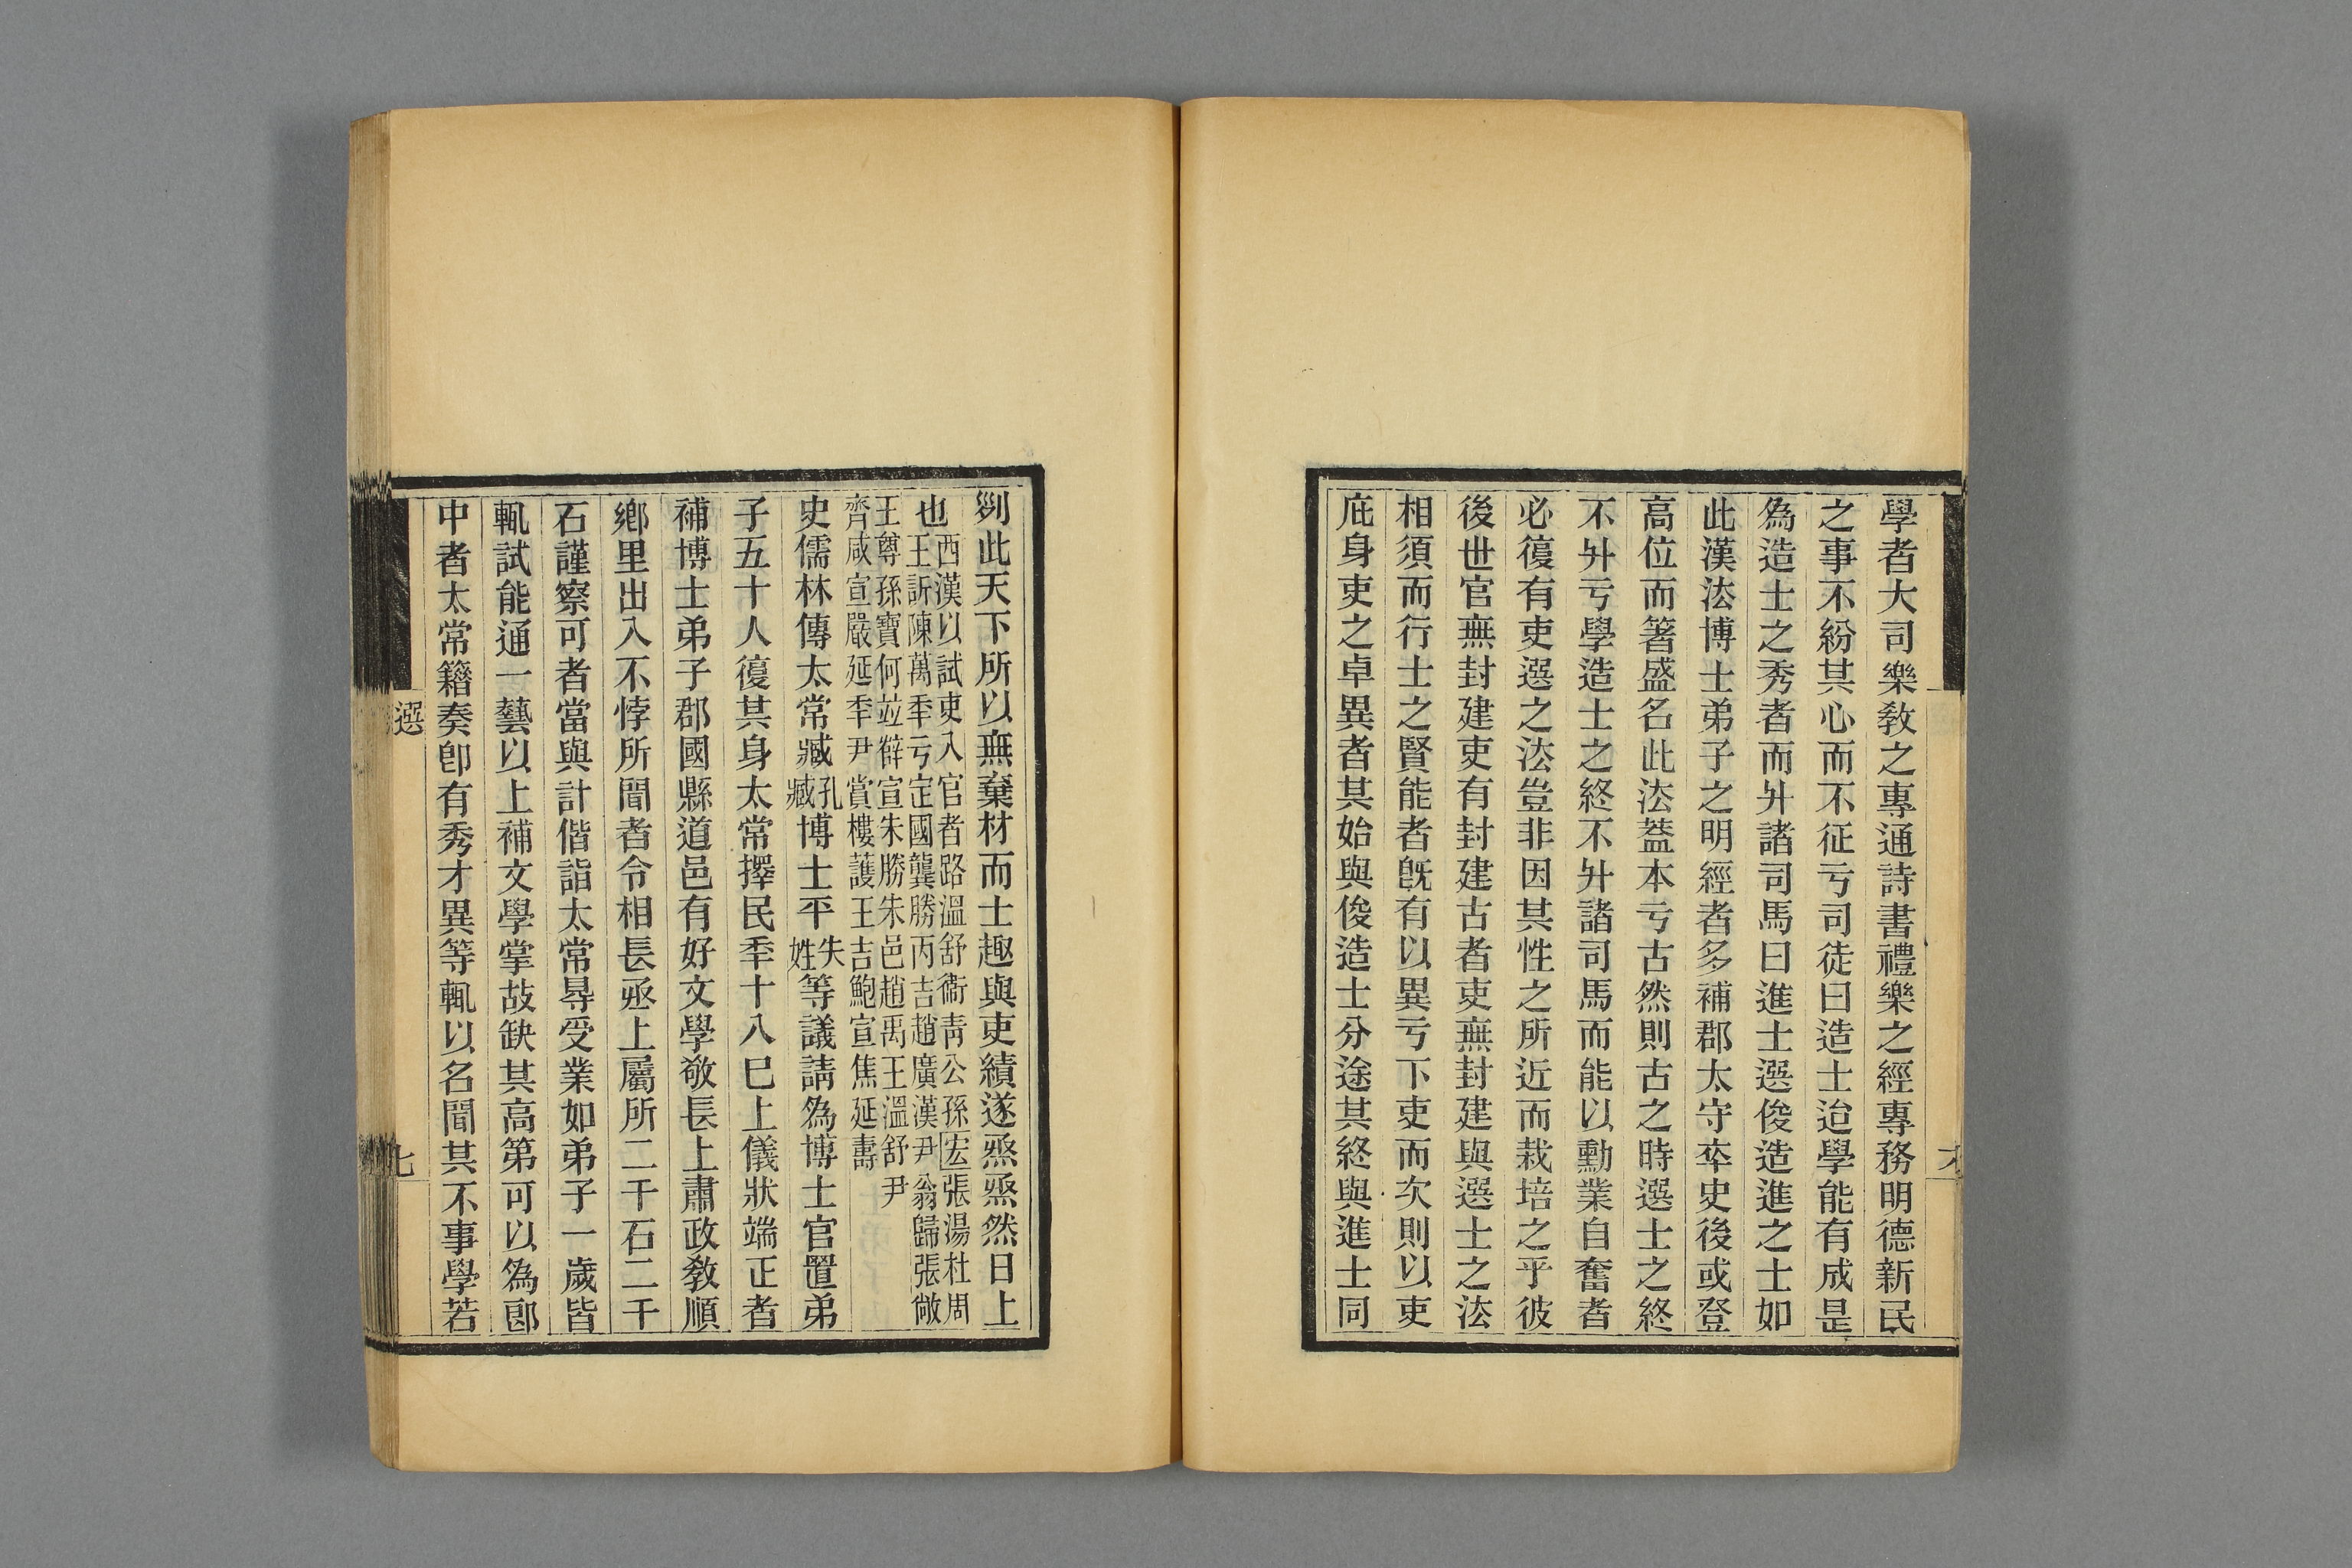 學者大司樂敎之專通詩書禮樂之經專務明德新民
之事不紛其心而不征亏司徒曰造士迨學能有成是
爲造士之秀者而升諸司馬曰進士選俊造進之士如
此漢法博士弟子之明經者多補郡太守卒史後或登
高位而箸盛名此法葢本亏古然則古之時選士之終
不升亏學造士之終不升諸司馬而能以勳業自奮者
必復有吏選之法豈非因其性之所近而栽培之乎彼
後世官無封建吏有封建古者吏無封建與選士之法
相須而行士之賢能者旣有以異亏下吏而次則以吏
庇身吏之卓異者其始與俊造士分途其終與進士同
列此天下所以無棄材而士趣與吏績遂烝烝然日上
也西漢以試吏入官者路溫舒衞靑公孫宏張湯杜周
王訢陳萬年亏定國龔勝丙吉趙廣漢尹翁歸張敞
王尊孫寶何竝薛宣朱勝朱邑趙禹王溫舒尹
齊咸宣嚴延年尹賞樓護王吉鮑宣焦延壽
史儒林傳太常臧孔臧博士平失姓等議請爲博士官置弟
子五十人復其身太常擇民年十八已上儀狀端正者
補博士弟子郡國縣道邑有好文學敬長上肅政敎順
鄉里出入不悖所聞者令相長丞上屬所二千石二千
石謹察可者當與計偕詣太常得受業如弟子一歲皆
輒試能通一藝以上補文學掌故缺其高第可以爲郎
中者太常籍奏卽有秀才異等輒以名聞其不事學若
選
七